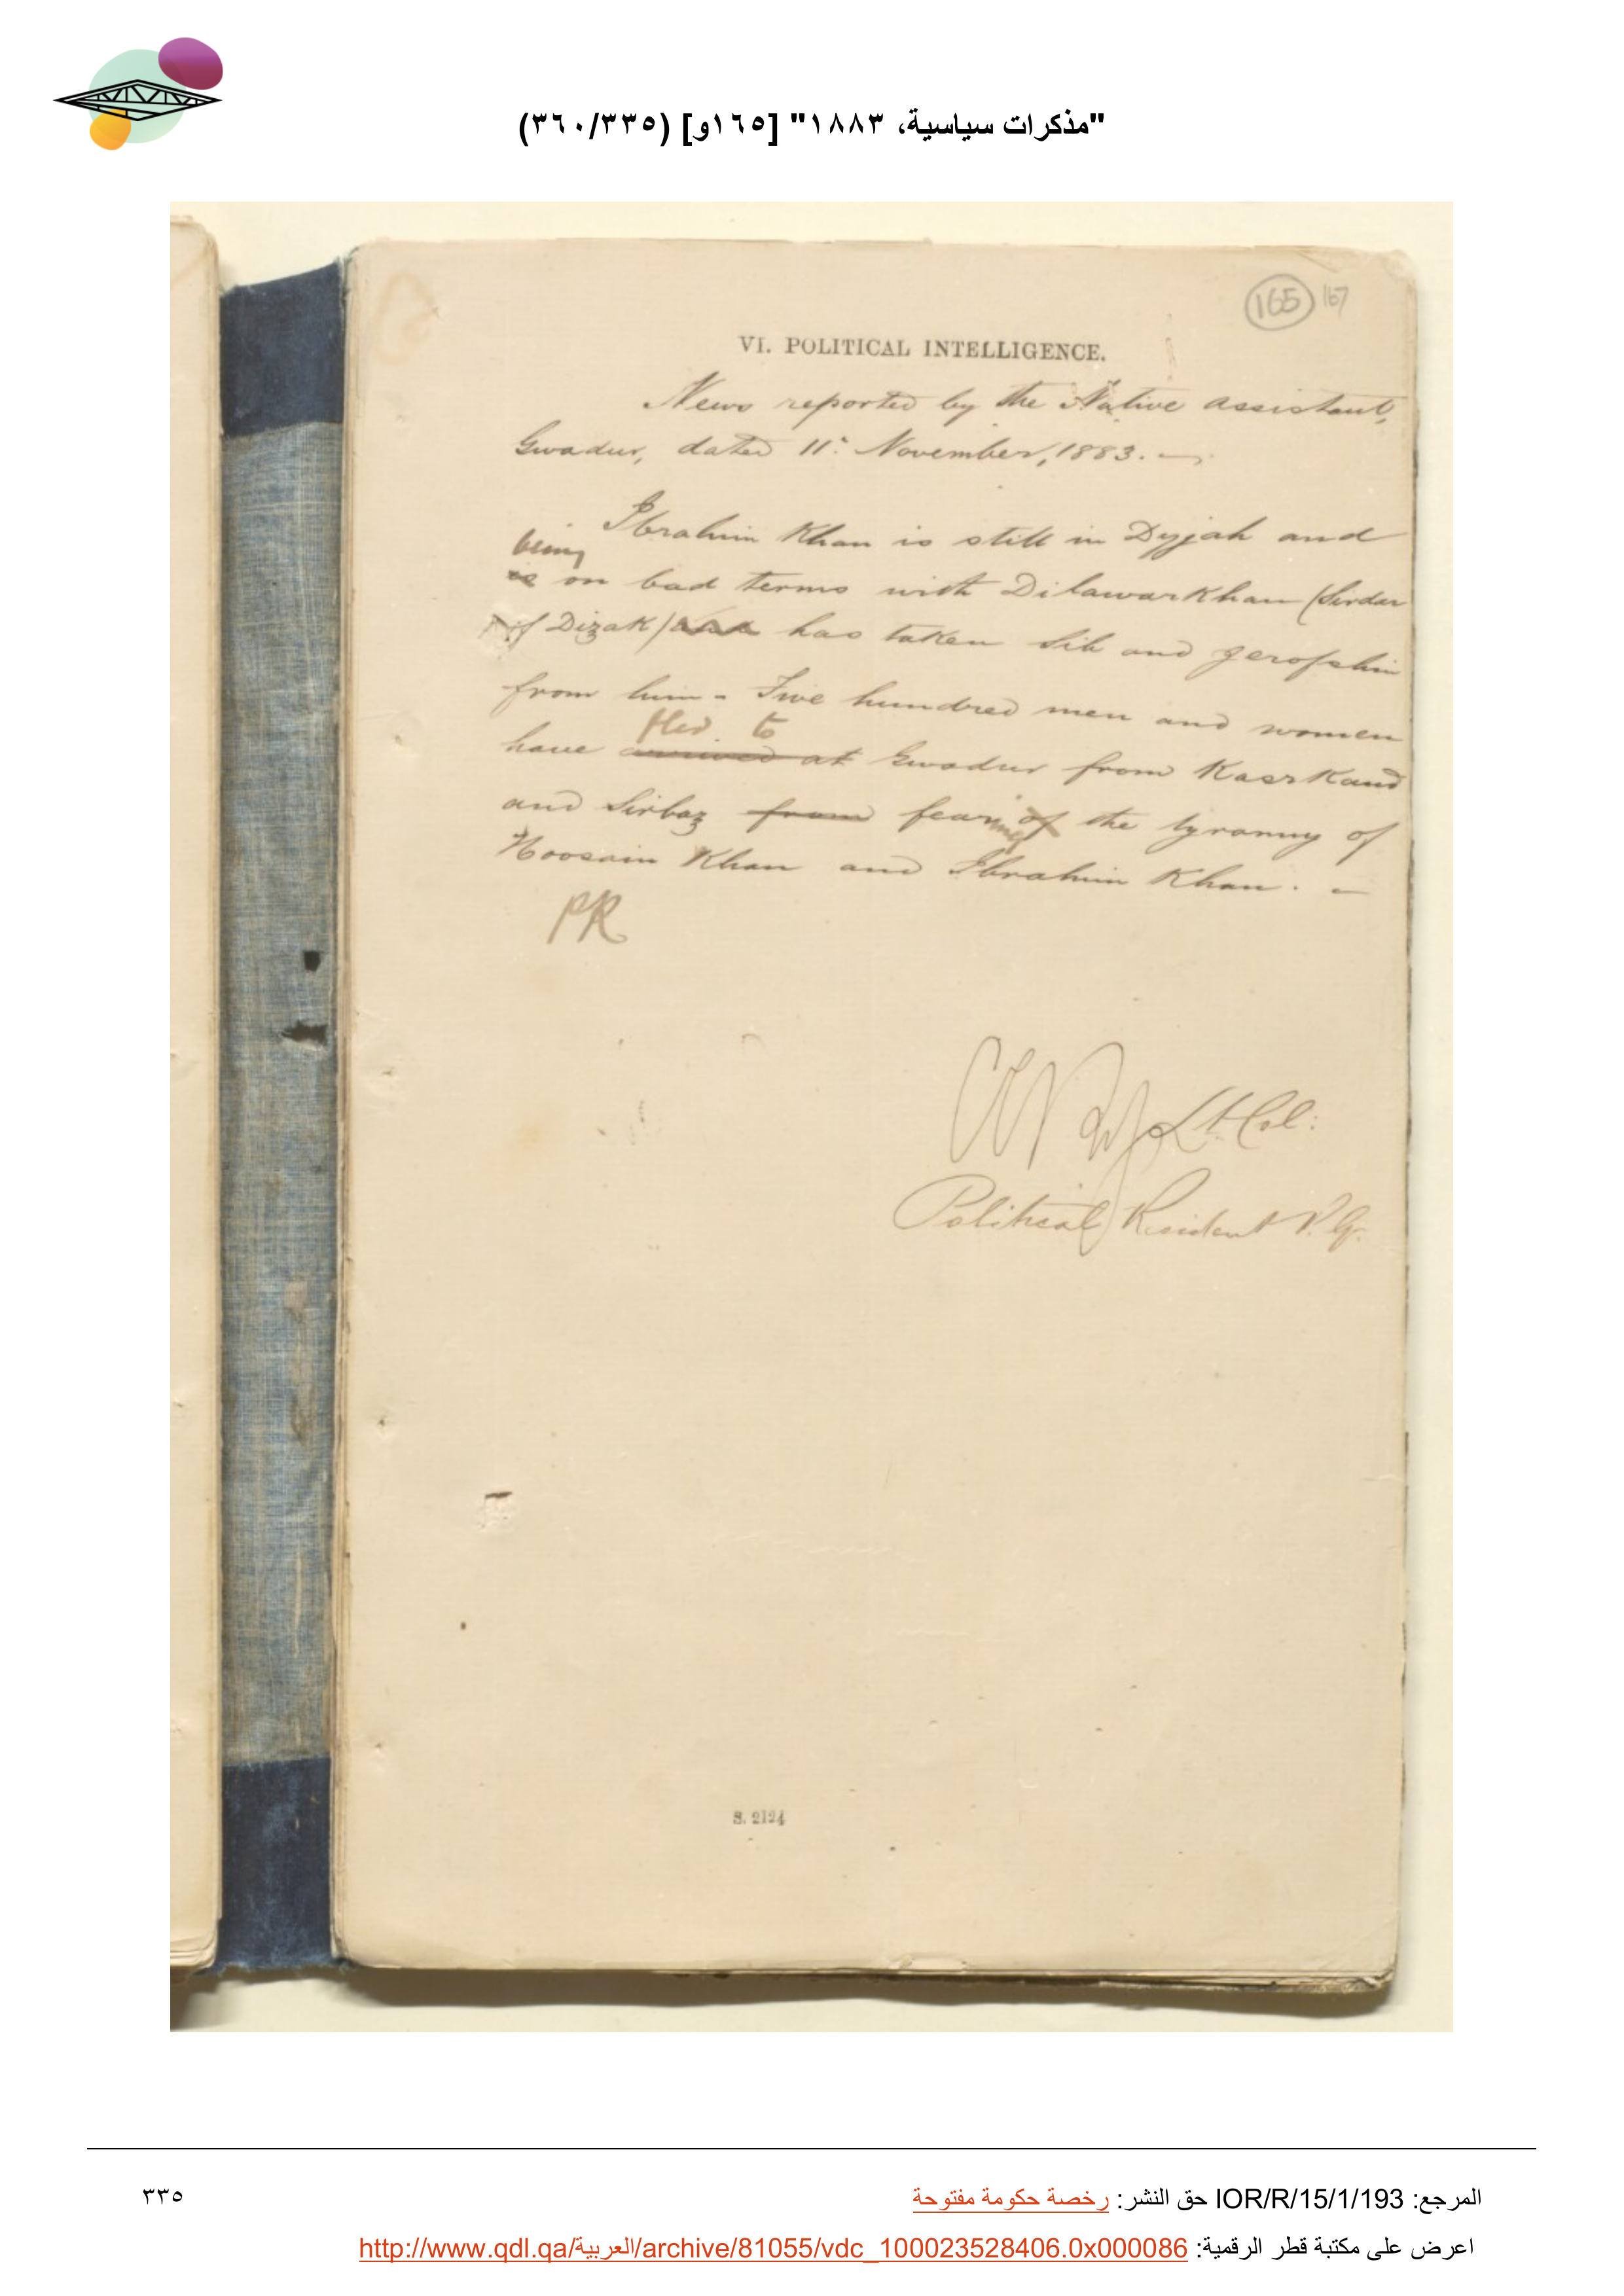 "مذكرات سياسية، ١٨٨٣" [١٦٥و] (٣٦٠/٣٣٥)
165 167
VI. POLITICAL INTELLIGENCE.
News reported by the Native Assistant,
Gwadur, dated 11. November, 1883. —
Ibrahim Khan is still in Dyjah and
being
is on bad terms with Dilawar Khan (Sirdar
of Dizak) has taken Sib and
from him - Five hundred men and women
fled to
have arrived at Gwadur from Kasrkand
and Sirbaz from fearing of the tyranny of
Hoosain Khan and Ibrahim Khan. —
PR
Lt. Col:
Political Resident P. G.
S. 2124
المرجع: IOR/R/15/1/193 حق النشر: رخصة حكومة مفتوحة
٣٣٥
اعرض على مكتبة قطر الرقمية: http://www.qdl.qa/العربية/archive/81055/vdc_100023528406.0x000086